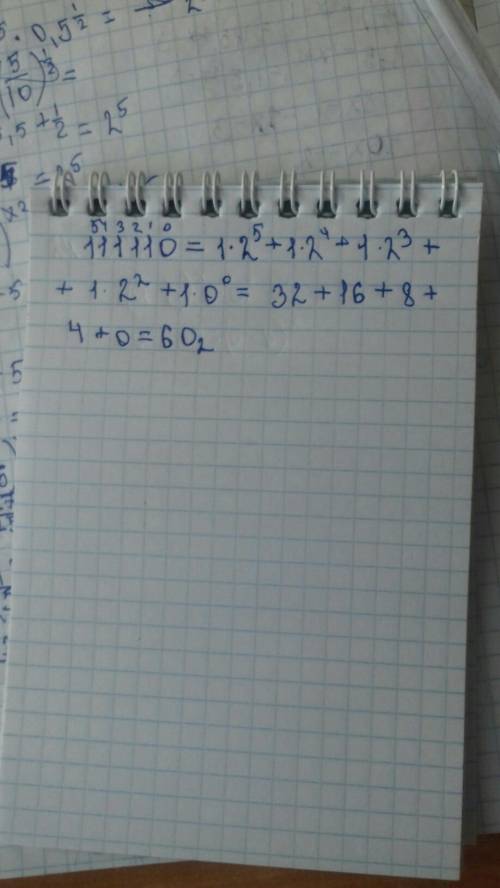 . 0,5^½ =
(5/10)^½ =
,5 + ½ = 2⁵
x²
5 4 3 2 1 0
111110 = 1·2⁵ + 1·2⁴ + 1·2³ +
+ 1·2² + 1·0⁰ = 32 + 16 + 8 +
4 + 0 = 60₂